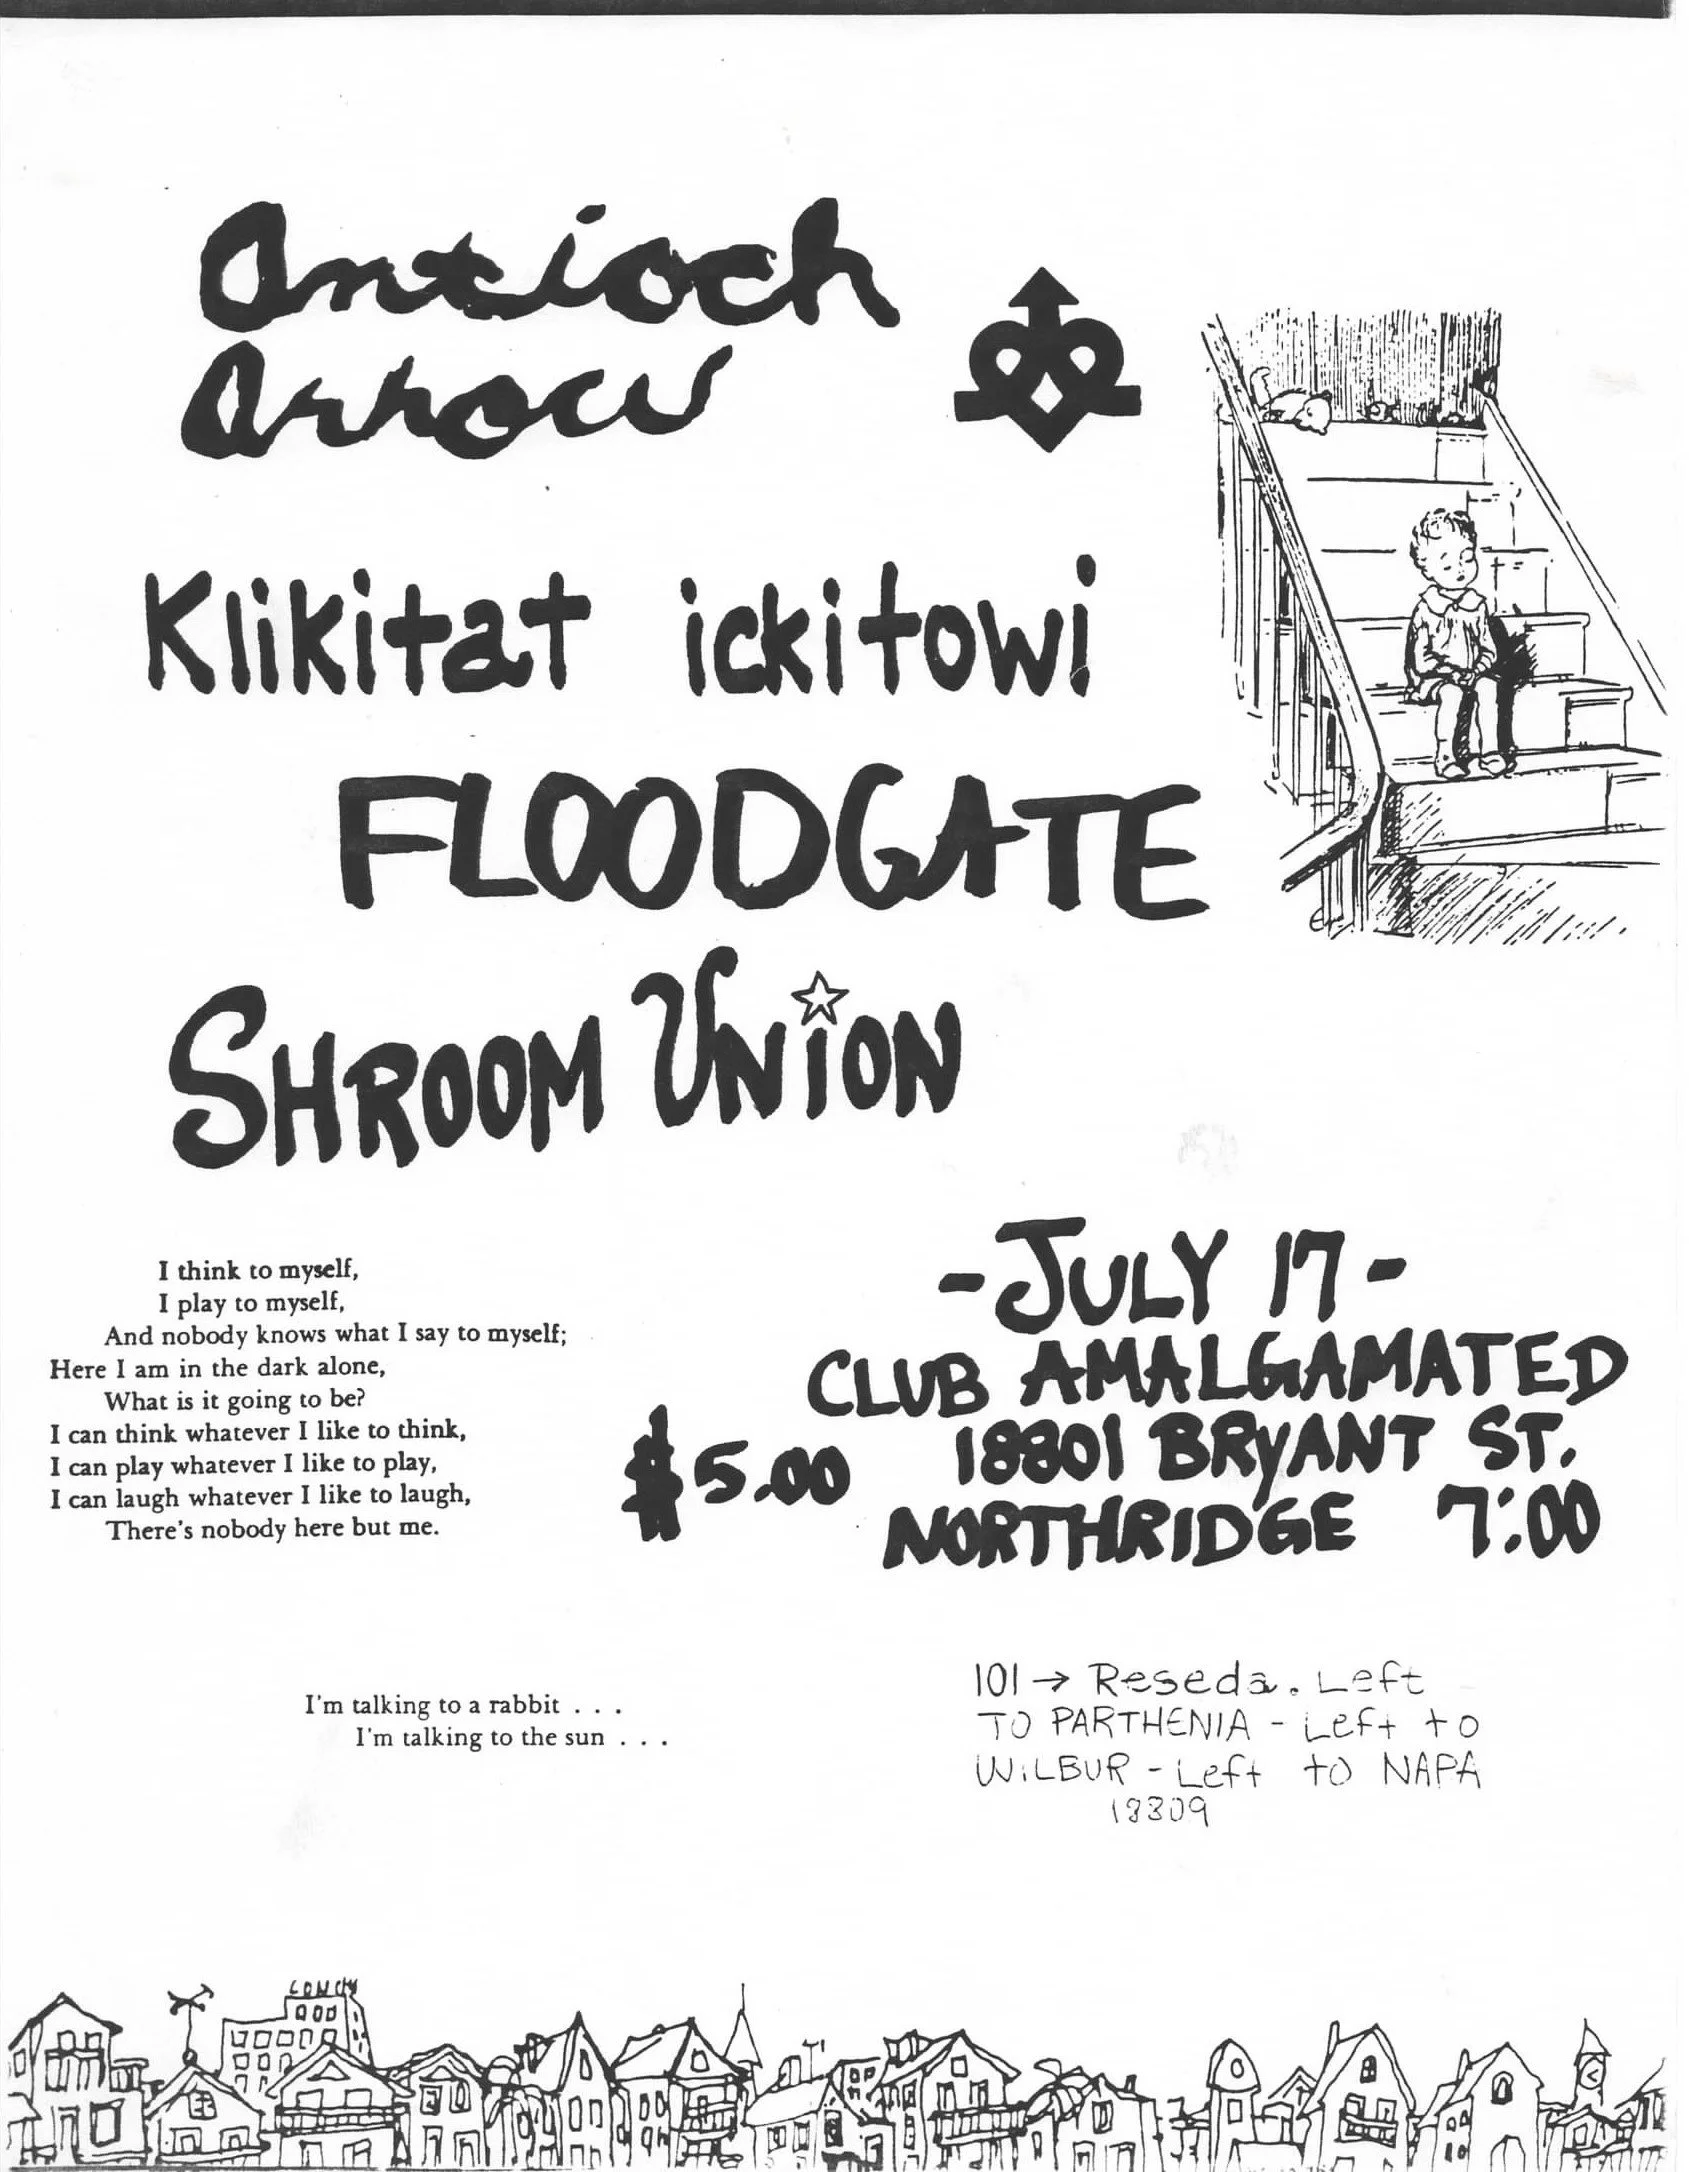 Antioch
Arrow
Klikitat ickitowi
FLOODGATE
SHROOM UNiON
I think to myself,
I play to myself,
And nobody knows what I say to myself;
Here I am in the dark alone,
What is it going to be?
I can think whatever I like to think,
I can play whatever I like to play,
I can laugh whatever I like to laugh,
There's nobody here but me.
-JULY 17-
CLUB AMALGAMATED
$5.00
18801 BRyANT ST.
NORTHRIDGE 7:00
I'm talking to a rabbit . . .
I'm talking to the sun . . .
101 → Reseda. Left
TO PARTHENIA - Left to
WiLBUR - Left to NAPA
18809